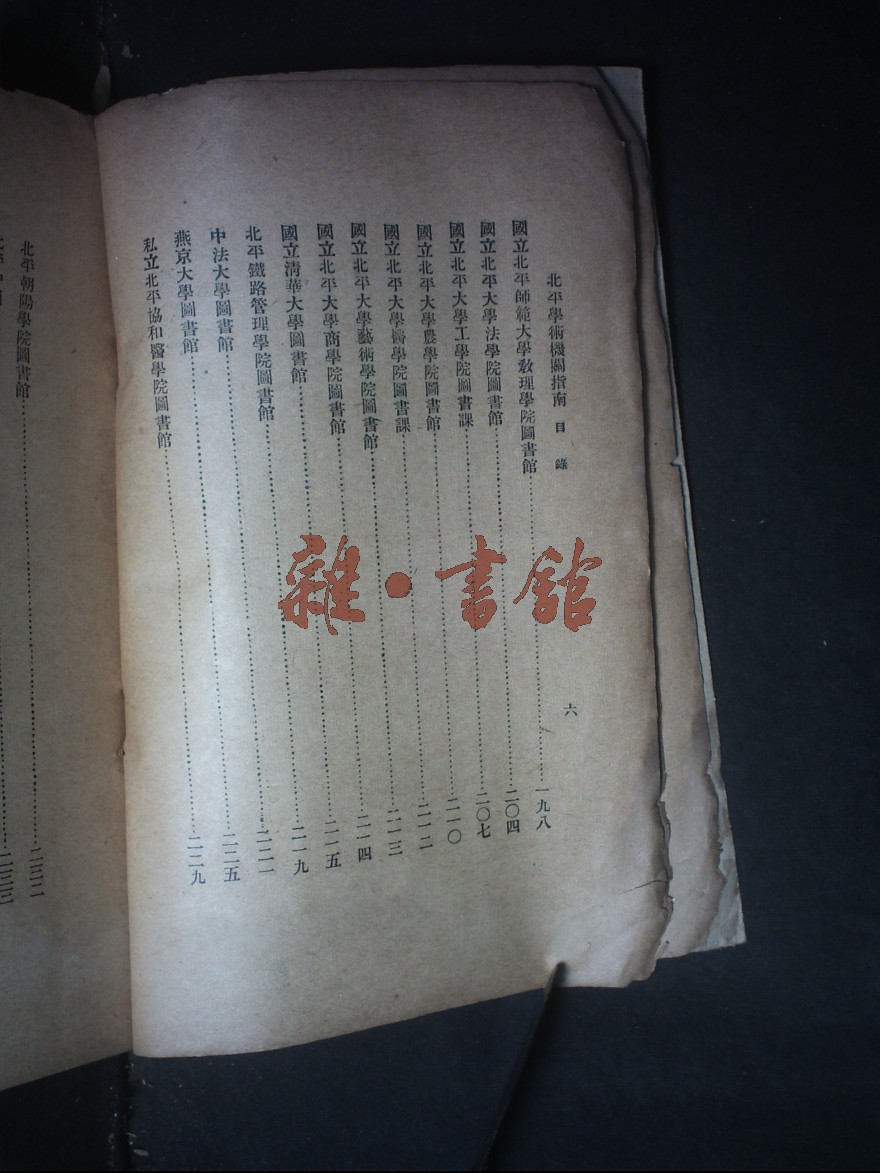 北平學術機關指南 目 錄 六
國立北平師範大學敎理學院圖書館……一九八
國立北平大學法學院圖書館……二〇四
國立北平大學工學院圖書課……二〇七
國立北平大學農學院圖書館……二一〇
國立北平大學醫學院圖書課……二一二
國立北平大學藝術學院圖書館……二一三
國立北平大學商學院圖書館……二一四
國立清華大學圖書館……二一五
北平鐵路管理學院圖書館……二一九
中法大學圖書館……二二一
燕京大學圖書館……二二五
私立北平協和醫學院圖書館……二二九
北平朝陽學院圖書館……二三二
二三三
雜·書館